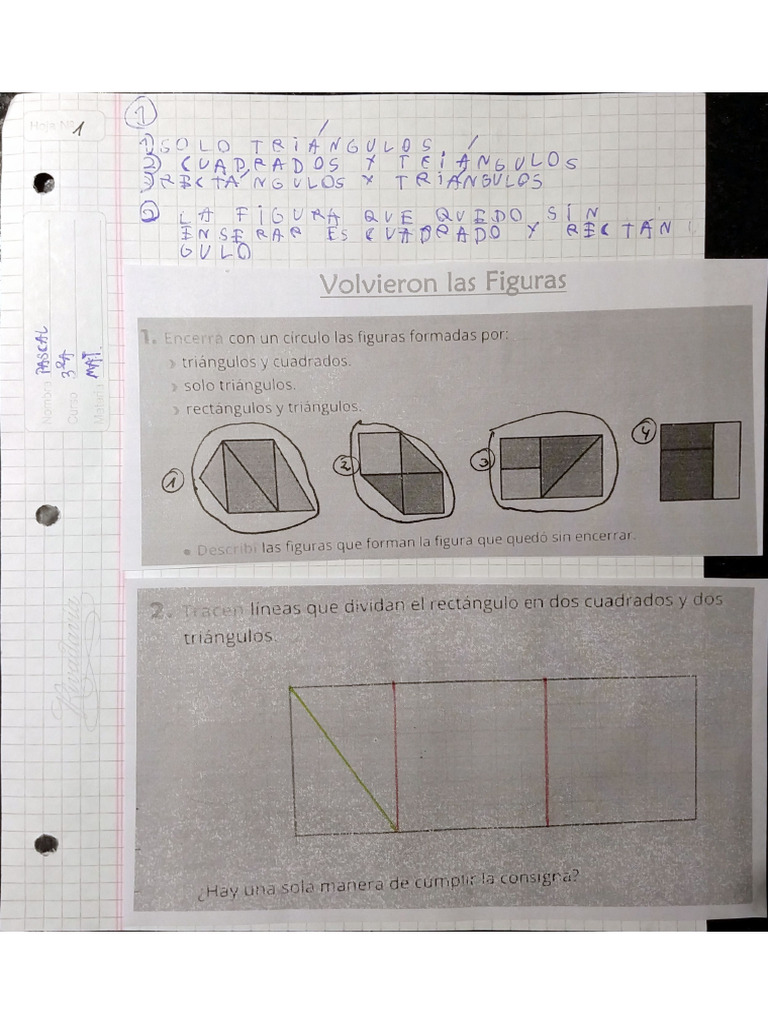 Hoja Nº 1
①
1) SOLO TRIÁNGULOS.
2) CUADRADOS Y TRIÁNGULOS
3) RECTÁNGULOS Y TRIÁNGULOS
② LA FIGURA QUE QUEDO SIN
ENSERAR ES CUADRADO Y RECTÁN
GULO
Nombre PASCAL
Curso 3RA
Materia MAT.
Rivadavia
Volvieron las Figuras
1. Encerrá con un círculo las figuras formadas por:
triángulos y cuadrados.
solo triángulos.
rectángulos y triángulos.
① ② ③ ④
• Describí las figuras que forman la figura que quedó sin encerrar.
2. Tracen líneas que dividan el rectángulo en dos cuadrados y dos
triángulos.
¿Hay una sola manera de cumplir la consigna?